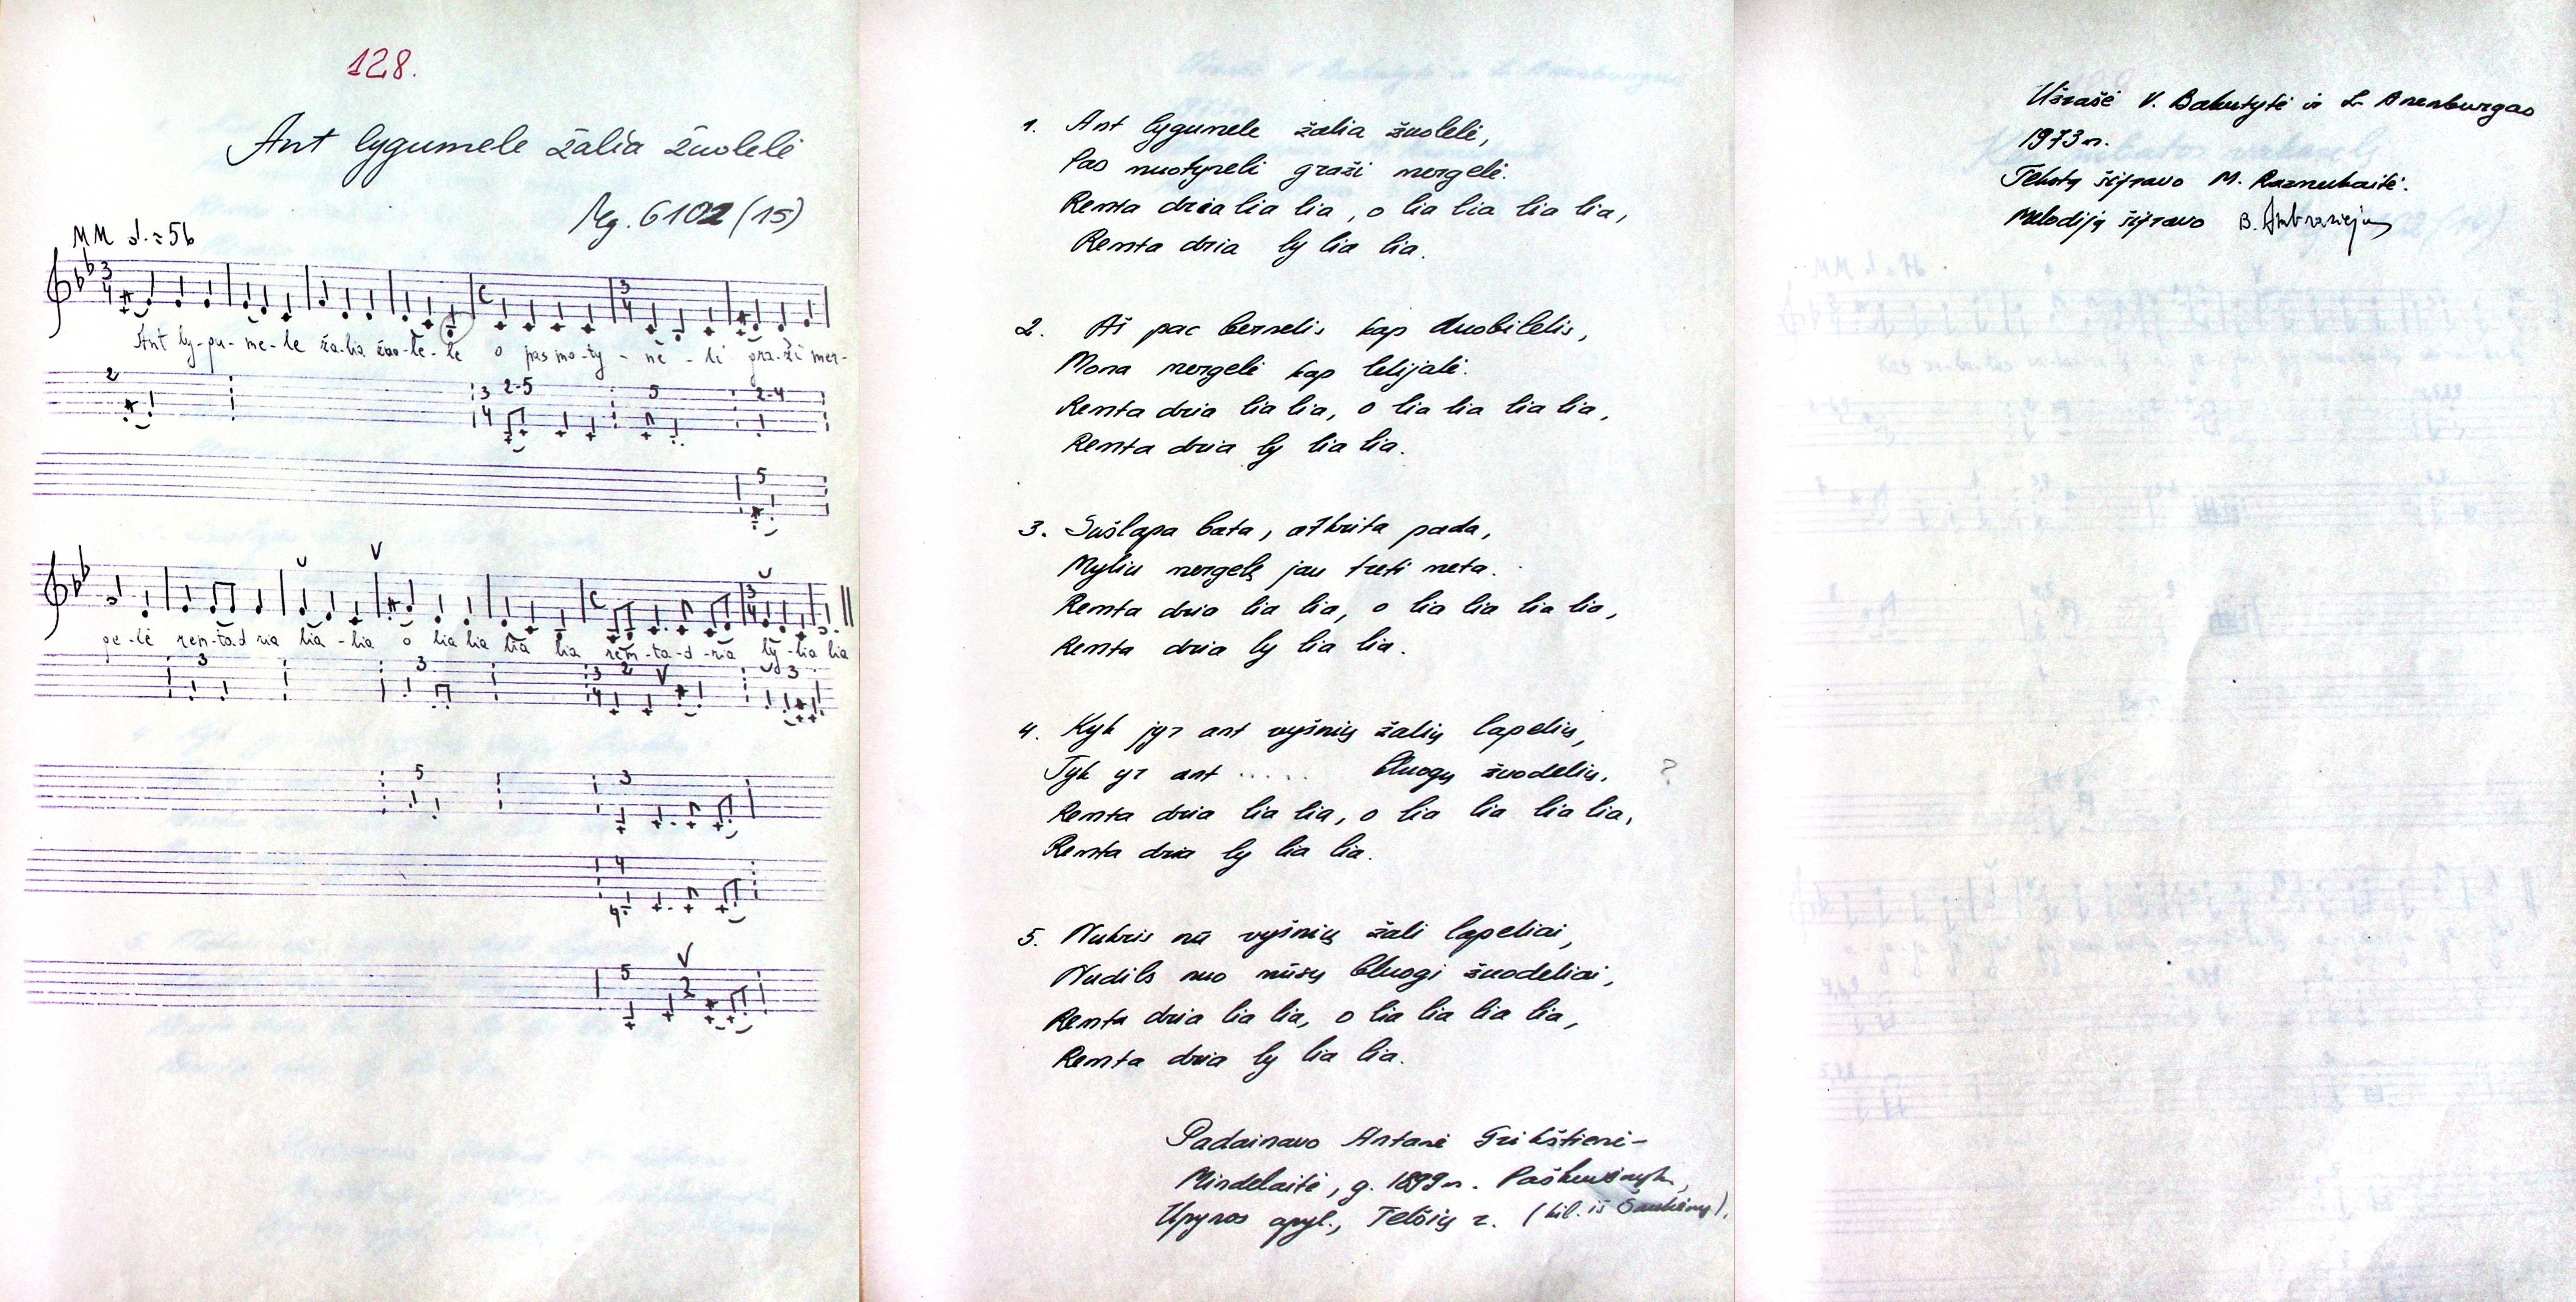 128.
Ant lygumele žalia žuolelė
Mg. 6102 (15)
MM 𝅗𝅥. = 56
Ant ly-gu-me-le ža-lia žuo-le-lė o pas mo-ty-nė-li gra-ži mer-
2 3 2-5 5 2-4
4
5
ge-lė rem-ta-d ria lia-lia o lia lia lia lia rem-ta-d-ria ly-lia lia
3 3 3 2 3
4
5 3
4
5 2
1. Ant lygumele žalia žuolelė,
Pas muotyneli graži mergelė.
Remta dria lia lia, o lia lia lia lia,
Remta dria ly lia lia.
2. Aš pac bernelis kap duobilelis,
Mona mergelė kap lelijalė.
Remta dria lia lia, o lia lia lia lia,
Remta dria ly lia lia.
3. Sušlapa bata, atkrita pada,
Myliu mergelę jau treti meta.
Remta dria lia lia, o lia lia lia lia,
Remta dria ly lia lia.
4. Kyk jyr ant vyšnių žalių lapelių,
Tyk yr ant ..... bluogų žuodelių. ?
Remta dria lia lia, o lia lia lia lia,
Remta dria ly lia lia.
5. Nukris nū vyšnių žali lapeliai,
Nudils nuo mūsų bluogi žuodeliai,
Remta dria lia lia, o lia lia lia lia,
Remta dria ly lia lia.
Padainavo Antanė Trikštienė-
Mindelaitė, g. 1899 m.
Upynos apyl., Telšių r. (kil. iš Šaukėnų).
Užrašė V. Bakutytė ir L. Anenburgas
1973 m.
Tekstą šifravo M. Razmukaitė.
Melodiją šifravo B. Ambraziejus